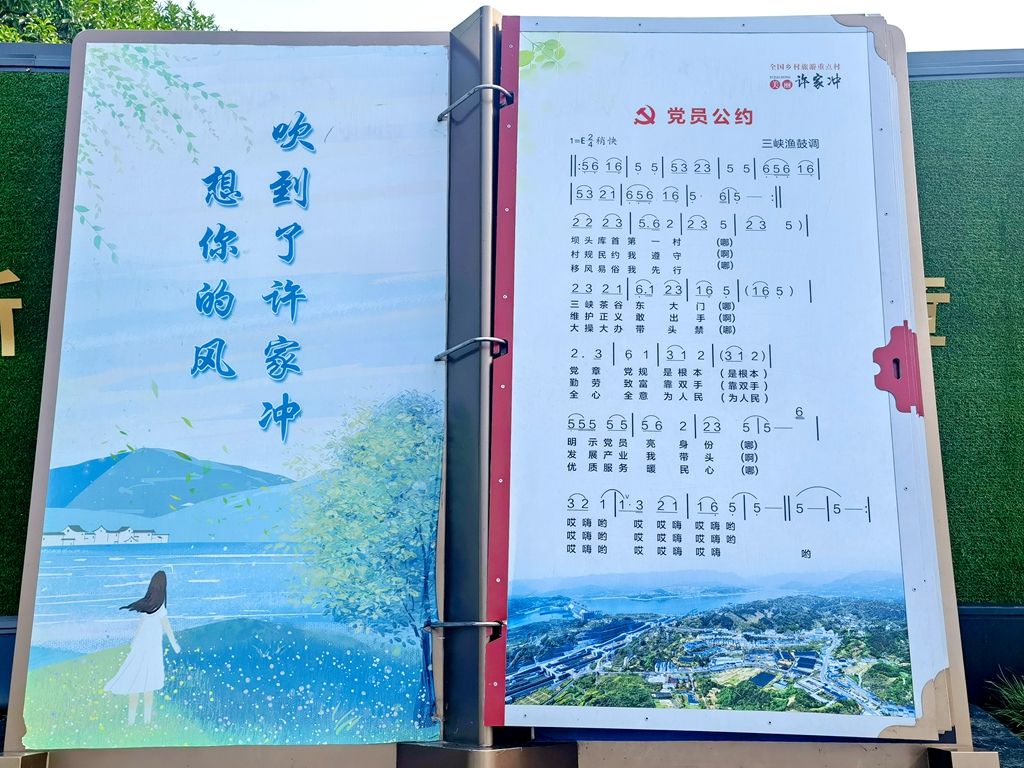 想你的风
吹到了许家冲
全国乡村旅游重点村
美丽 许家冲
党员公约
1=E 2/4 稍快
三峡渔鼓调
‖:56 16|5 5|53 23|5 5|656 16|
|53 21|656 16|5· 6|5 — :‖
22 23|5·6 2|23 5|23 5)|
坝头库首第一村 (哪)
村规民约我遵守 (啊)
移风易俗我先行 (哪)
23 21|61 23|16 5|(16 5)|
三峡茶谷东大门 (哪)
维护正义敢出手 (啊)
大操大办带头禁 (哪)
2. 3|6 1|31 2|(31 2)|
党章党规是根本 (是根本)
勤劳致富靠双手 (靠双手)
全心全意为人民 (为人民)
555 55|56 2|23 5|5— 6|
明示党员亮身份 (哪)
发展产业我带头 (啊)
优质服务暖民心 (哪)
32 1|1·3 21|16 5|5—‖5—|5—:|
哎嗨哟 哎哎嗨哎嗨哟
哎嗨哟 哎哎嗨哎嗨哟
哎嗨哟 哎哎嗨哎嗨 哟